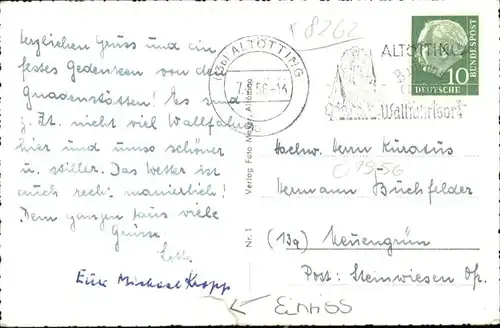 Herzlichen Gruss und ein
festes Gedenken von der
Gnadenstätte! Es sind
z. Zt. nicht viel Wallfahrer
hier und umso schöner
u. stiller. Das Wetter ist
auch recht manierlich!
Dem ganzen Haus viele
Grüsse
Lotte
Eure Michael Kropp
x 8262
(13b) ALTÖTTING
ALTÖTTING
Wallfahrtsort
10
DEUTSCHE
BUNDESPOST
Verlag Foto Meister, Altötting
Nr. 1
Hochw. Herrn Kuratus
1956
Hermann Buchfelder
(13a) Neuengrün
Post: Steinwiesen Ofr.
EINRISS